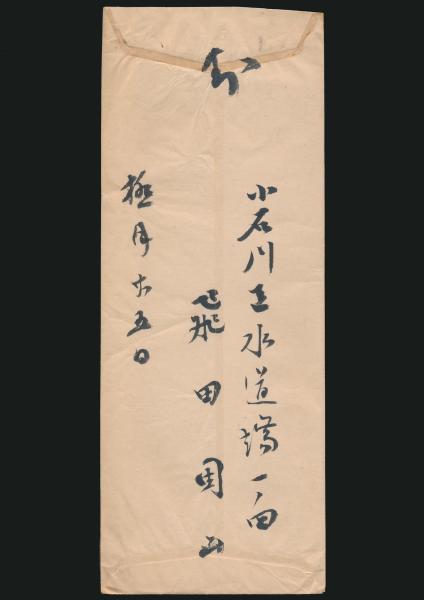 封
小石川区水道端一ノ四
飛田周山
極月廿五日